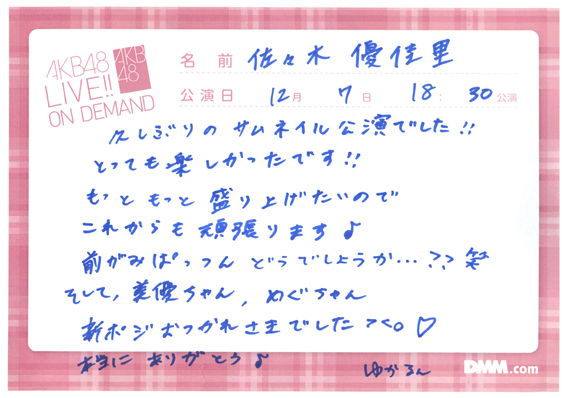 AKB48
LIVE!!
ON DEMAND
AKB
48
名前 佐々木 優佳里
公演日 12月 7日 18:30公演
久しぶりの サムネイル公演でした!!
とっても楽しかったです!!
もっともっと 盛り上げたいので
これからも 頑張ります♪
前がみぱっつん どうでしょうか…?? 笑
そして, 美優ちゃん, めぐちゃん
新ポジおつかれさまでした><。♡
本当に ありがとう♪
ゆかるん
DMM.com